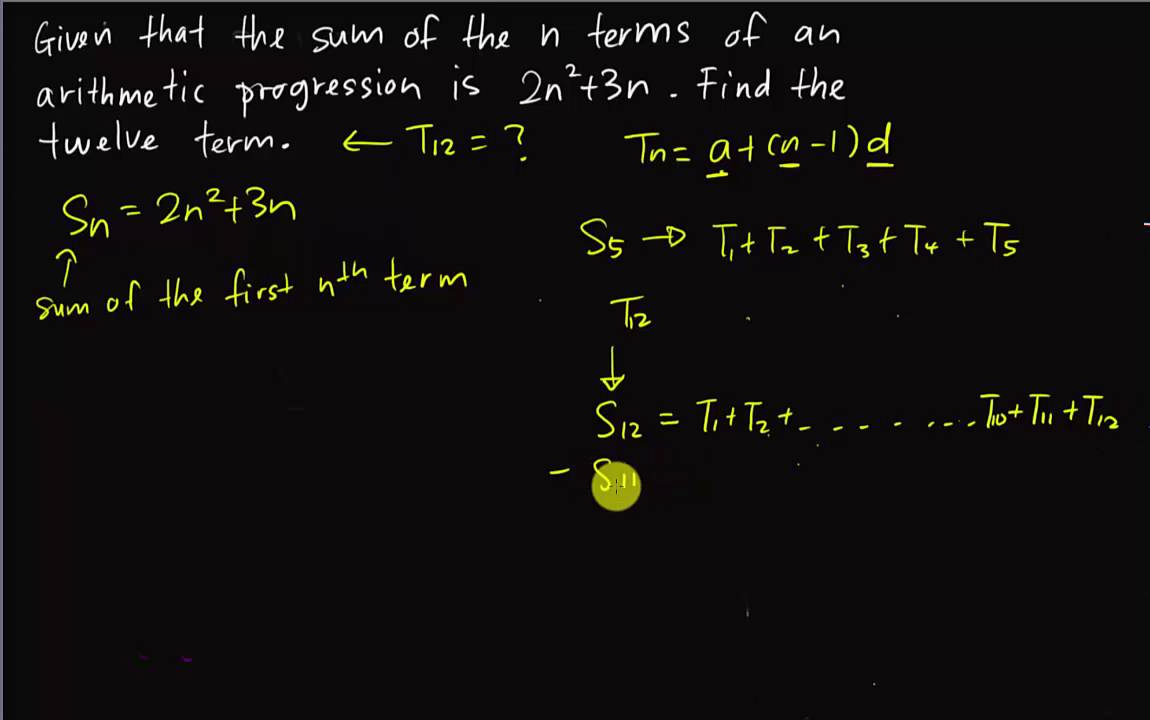 Given that the sum of the n terms of an
arithmetic progression is 2n²+3n. Find the
twelve term. ← T₁₂ = ? Tn = a + (n-1)d
Sn = 2n²+3n
↑
sum of the first nth term
S₅ → T₁ + T₂ + T₃ + T₄ + T₅
T₁₂
↓
S₁₂ = T₁ + T₂ + - - - - ... . T₁₀ + T₁₁ + T₁₂
- S₁₁